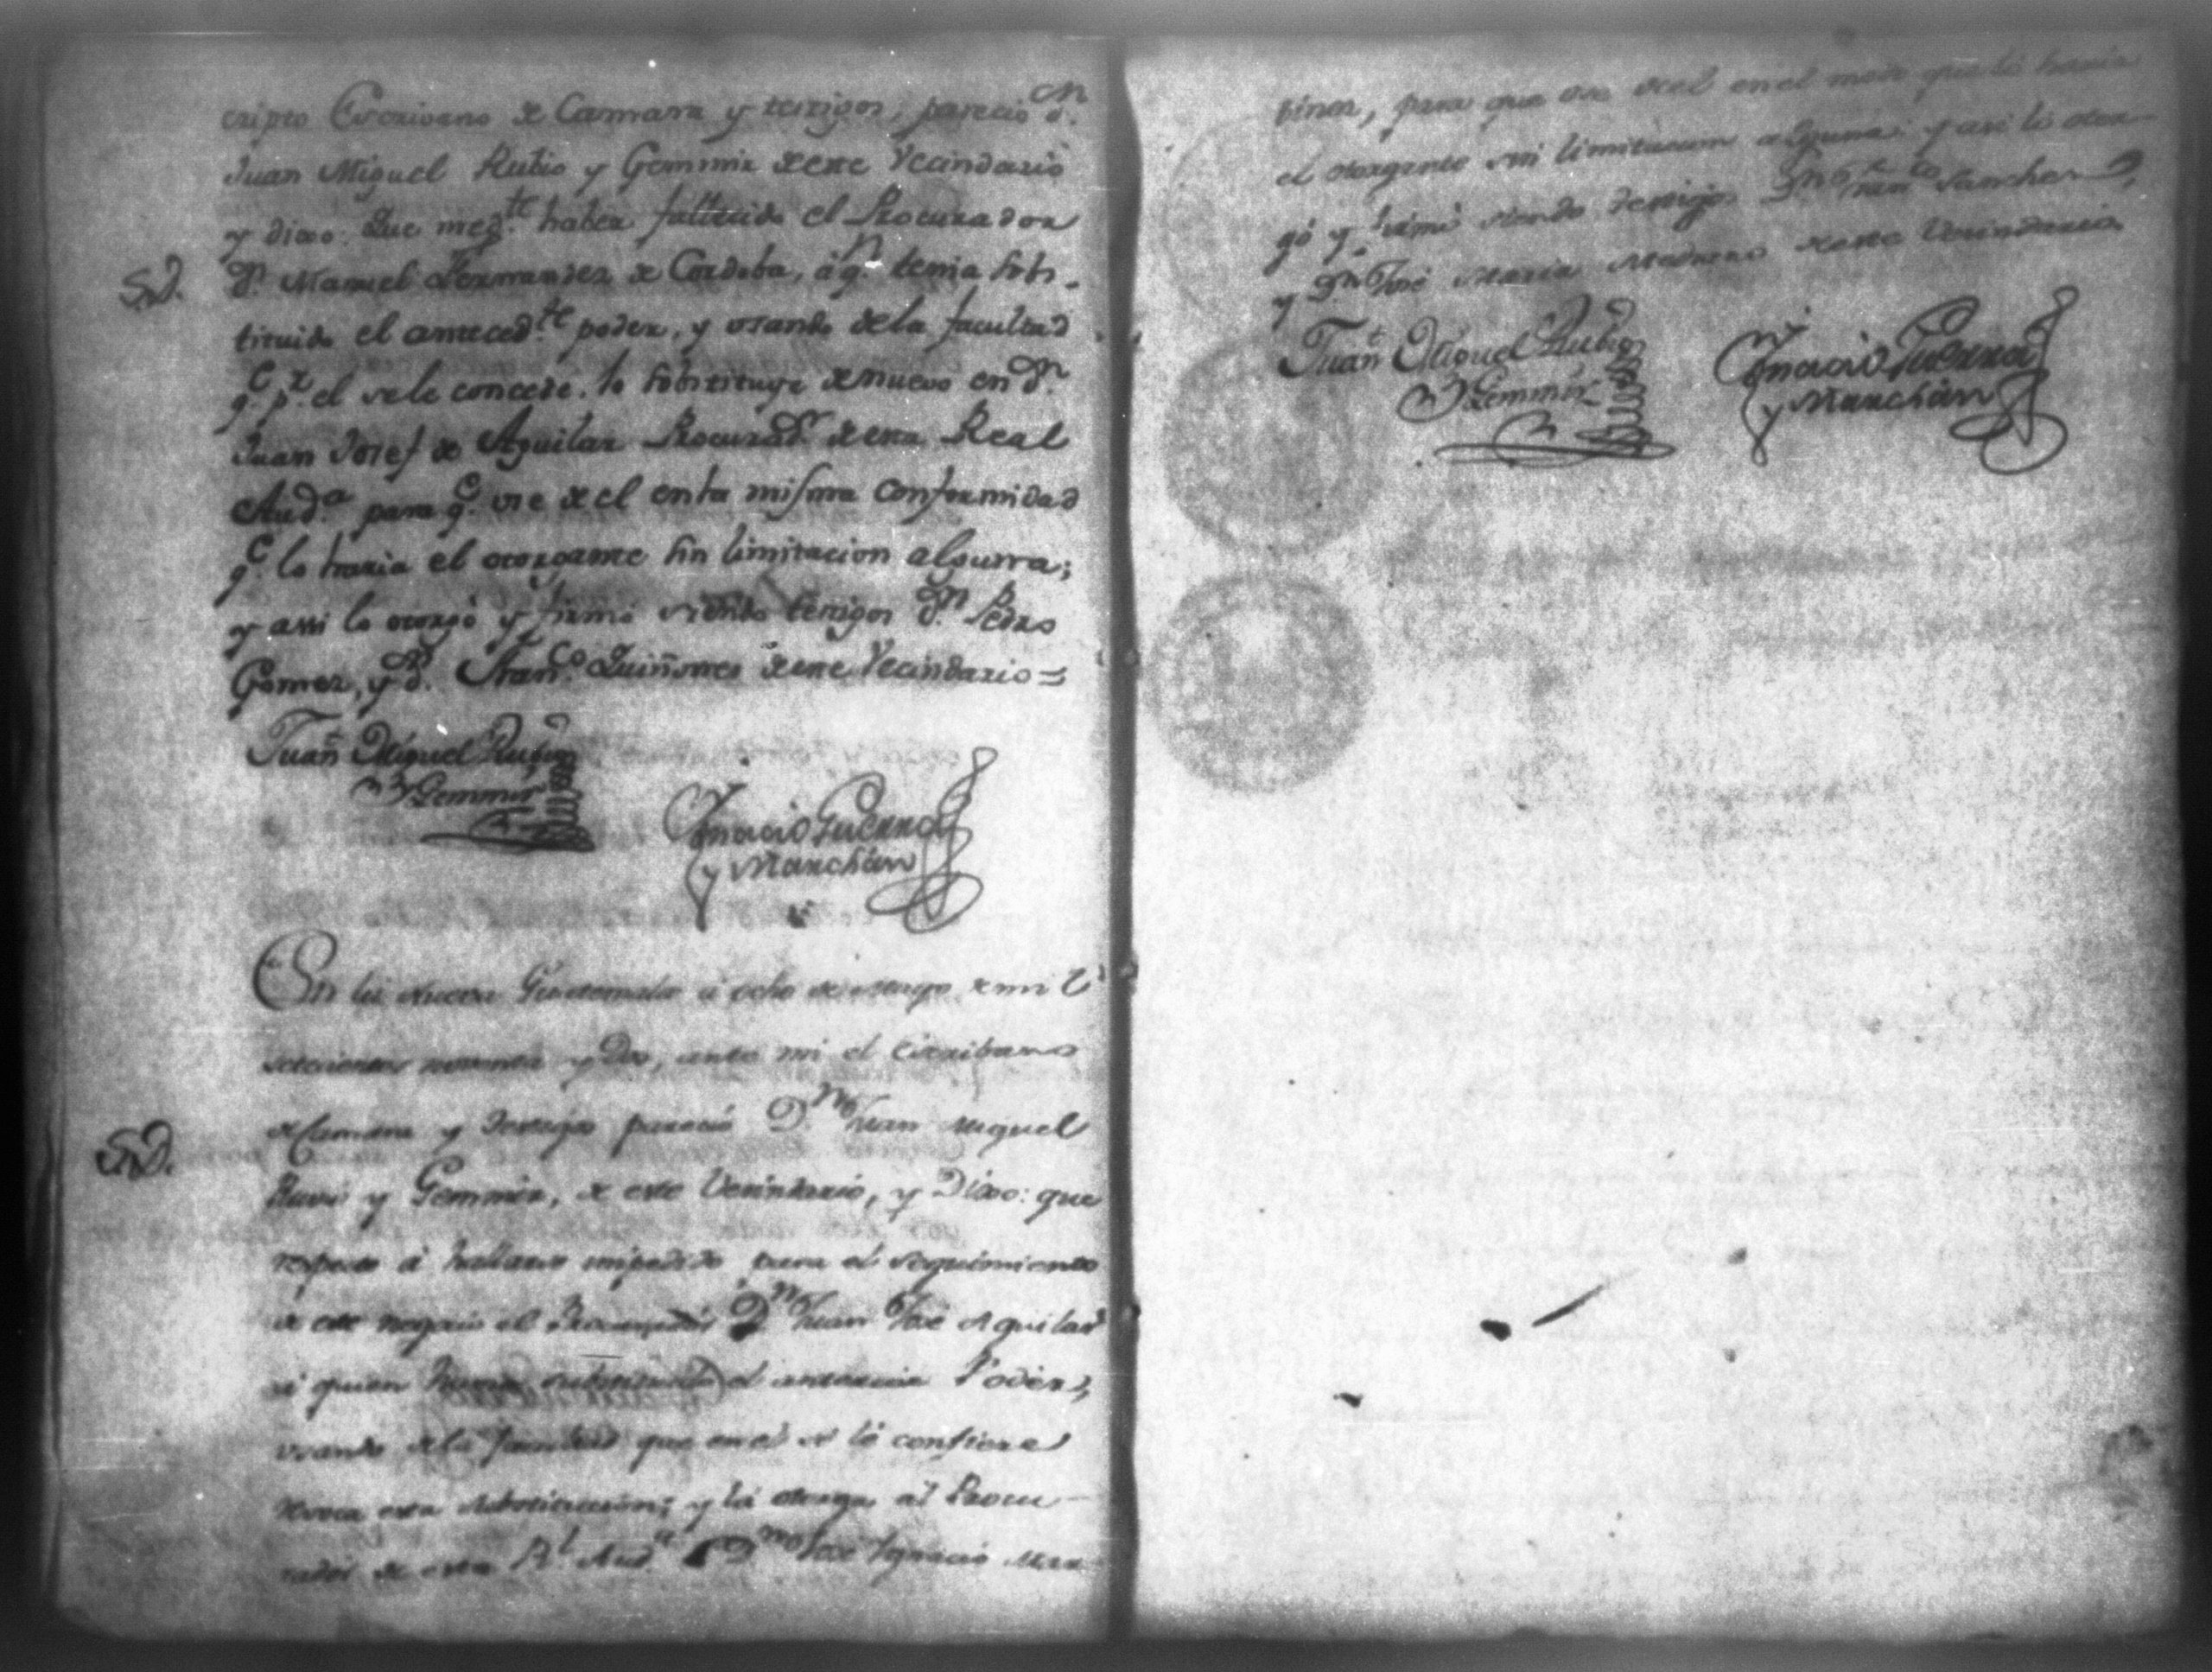 cripto Escrivano de Camara y testigos, parecio d.n
Juan Miguel Rubio y Gemmir de este Vecindario
y dixo: Que med.te haber fallecido el Procurador
d.n Manuel Hernandez de Cordoba, á q.n tenia subs-
tituido el anteced.te poder, y usando de la facultad
q.e p.r el se le concede, lo substituye de nuevo en d.n
Juan Josef de Aguilar Procurad.r de esta Real
Aud.a para q.e use de el en la misma conformidad
q.e lo haria el otorgante sin limitacion alguna;
y assi lo otorgó y firmó siendo testigos d.n Pedro
Gomez, y d.n Fran.co Quiñones de este Vecindario=
Juan Miguel Rubio
y Gemmir
Ignacio Guerra
y Marchán
En la Nueva Guatemala á ocho de Mayo de mil
setecientos noventa y Dos, ante mi el Escribano
de Camara y testigos pareció D.n Juan Miguel
Ruvio y Gemmir, de este Vecindario, y Dixo: que
respecto á hallarse impedido para el seguimiento
de este negocio el Procurador D.n Juan José Aguilar
á quien havia substituido el anterior Poder,
usando de la facultad que en el se le confiere
revoca esta substitucion; y la otorga al Procu-
rador de esta R.l Aud.a D.n José Ignacio Mar-
tinez, para que use de el en el modo que lo haria
el otorgante sin limitacion alguna: y asi lo otor-
gó y firmó siendo testigos D.n Fran.co Sanchez,
y D.n José Maria de este Vecindario
Juan Miguel Rubio
y Gemmir
Ignacio Guerra
y Marchán